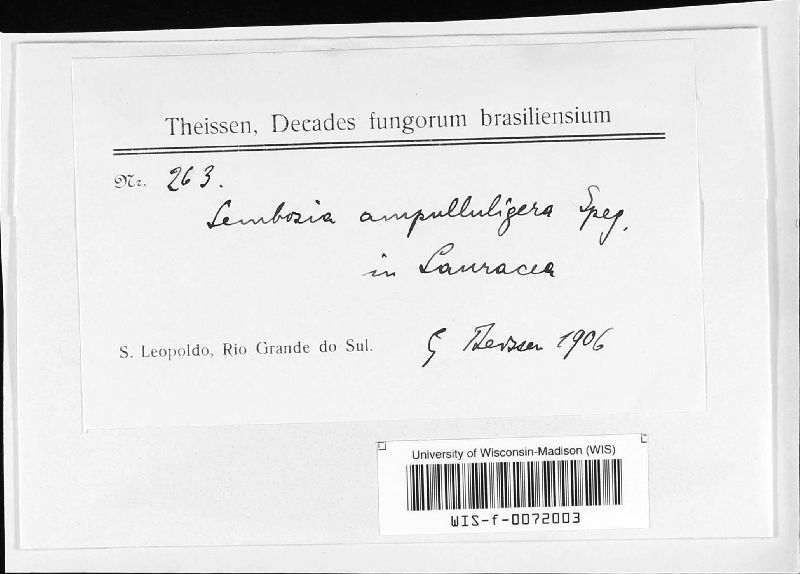 Theissen, Decades fungorum brasiliensium
Nr. 263.
Lembosia ampulluligera Speg.
in Lauracea
S. Leopoldo, Rio Grande do Sul. G Theissen 1906
University of Wisconsin-Madison (WIS)
WIS-f-0072003